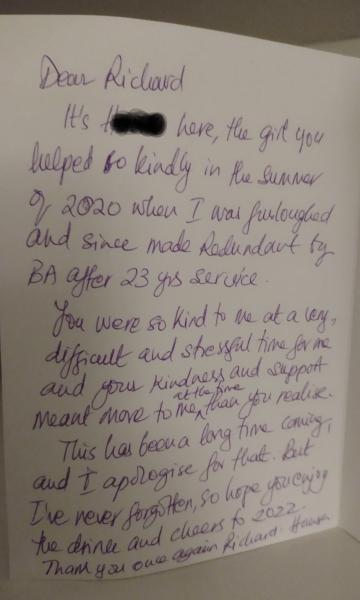 Dear Richard
It's H here, the girl you
helped so kindly in the summer
of 2020 when I was furloughed
and since made Redundant by
BA after 23 yrs service.
You were so kind to me at a very,
difficult and stressful time for me
and your kindness and support
meant more to me, at the time than you realise.
This has been a long time coming,
and I apologise for that. But
I've never forgotten, so hope you enjoy
the drink and cheers to 2022.
Thank you once again Richard.